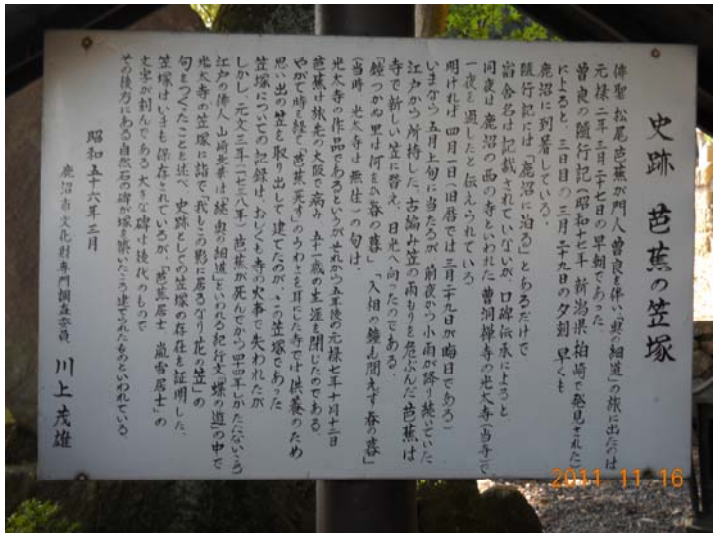 史跡 芭蕉の笠塚
俳聖 松尾芭蕉が門人曽良を伴い「奥の細道」の旅に出たのは
元禄二年三月二十七日の早朝であった。
曽良の随行記(昭和十七年 新潟県柏崎で発見された)
によると、三日目の三月二十九日の夕刻、早くも
鹿沼に到着している。
随行記には「鹿沼に泊る」とあるだけで
宿舎名は記載されていないが、口碑伝承によると、
同夜は鹿沼の西の寺といわれた曹洞禅寺の光太寺(当寺)で、
一夜を過したと伝えられている
明ければ 四月一日(旧暦では三月二十九日が晦日である)
いまなら五月上旬に当たるが、前夜から小雨が降り続いていた
江戸から所持した、古編み笠の雨もりを危ぶんだ芭蕉は
寺で新しい笠に替え、日光へ向ったのである。
「鐘つかぬ里は何をか春の暮」 「入相の鐘も聞えず春の暮」
(当時 光太寺は無住)の句は、
光太寺の作品であるというが それから五年後の元禄七年十月十二日
芭蕉は旅先の大阪で病み 五十一歳の生涯を閉じたのである、
やがて時を経て「芭蕉死す」のうわさを耳にした寺では供養のため
思い出の笠を取り出して建てたのが、この笠塚であった
笠塚についての記録は、おしくも寺の火事で失われたが
しかし、元文三年(一七三八年)芭蕉が死んでから四十四年しかたたないころ
江戸の俳人 山崎北華は「続奥の細道」といわれる紀行文「蝶の遊」の中で
光太寺の笠塚に詣で「我もこの影に居るなり花の笠」の
句をつくったことを述べ、史跡としての笠塚の存在を証明した、
笠塚はいまも保存されているが、「芭蕉居士 嵐雪居士」の
文字が刻んである大きな碑は後代のもので
その後方にある自然石の碑が塚を築いたころ建てられたものといわれている、
昭和五十六年三月
鹿沼市文化財専門調査委員 川上茂雄
2011.11.16